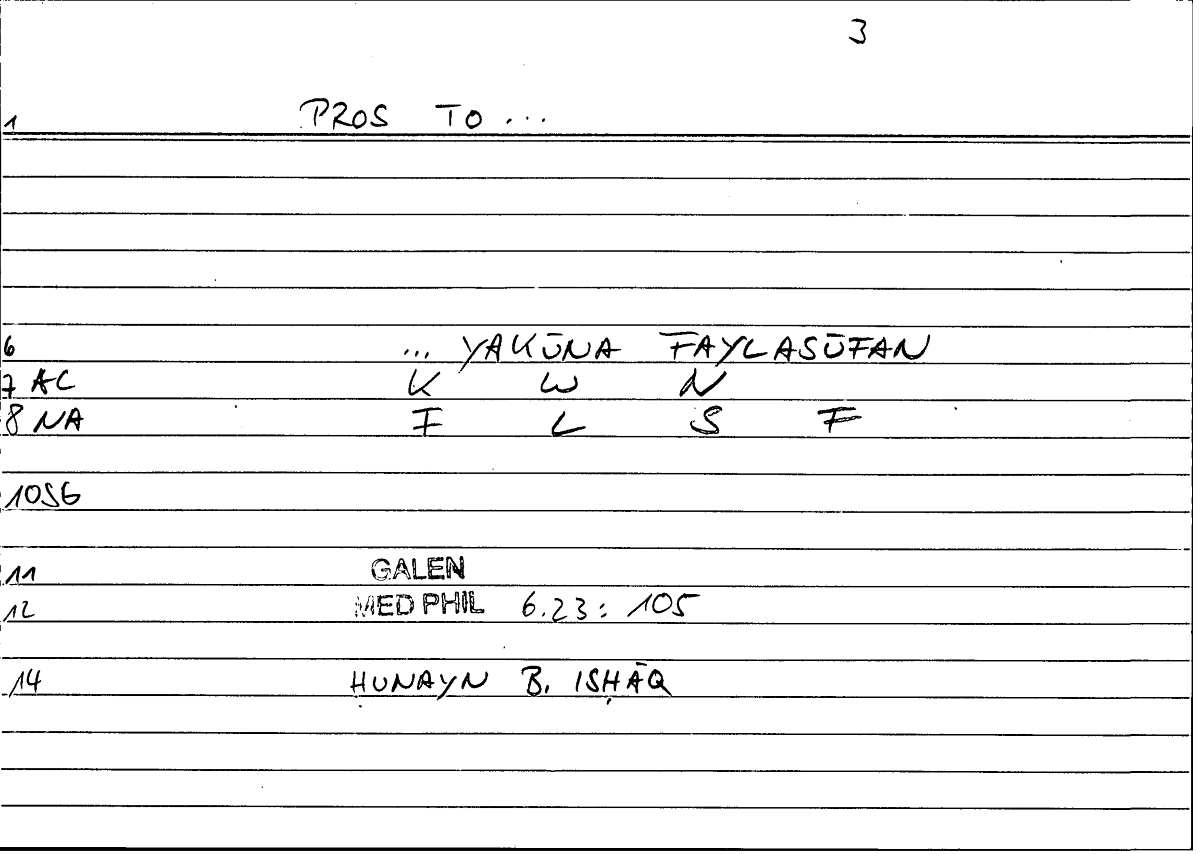 3
1 PROS TO ...
6 ... YAKŪNA FAYLASŪFAN
7 AC K W N
8 NA F L S F
10SG
11 GALEN
12 MED PHIL 6.23: 105
14 ḤUNAYN B. ISḤĀQ